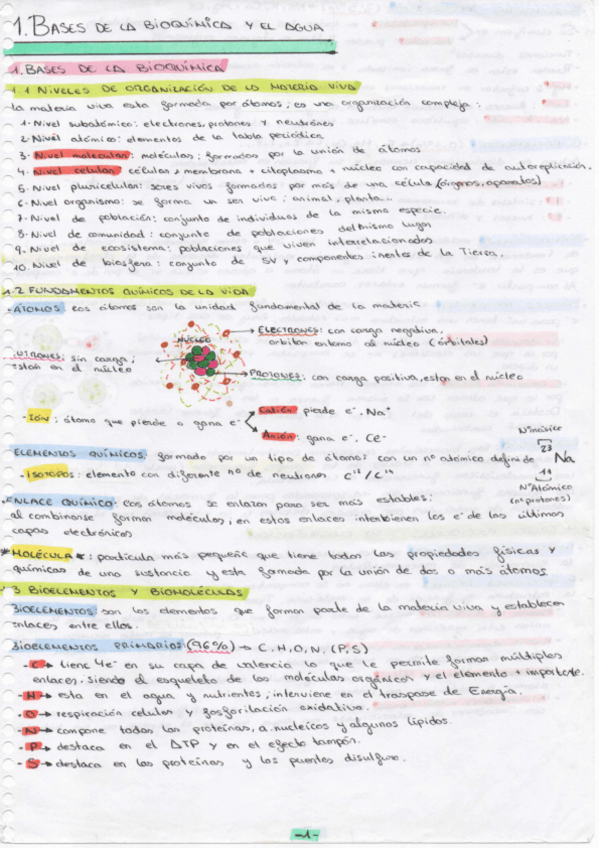 1. BASES DE LA BIOQUÍMICA Y EL AGUA
1. BASES DE LA BIOQUÍMICA
1.1 NIVELES DE ORGANIZACIÓN DE LA MATERIA VIVA
La materia viva esta formada por átomos; es una organización compleja:
1. Nivel subatómico: electrones, protones y neutrones
2. Nivel atómico: elementos de la tabla periódica
3. Nivel molecular: moléculas; formadas por la unión de átomos
4. Nivel celular: células; membrana + citoplasma + núcleo con capacidad de autoreplicación.
5. Nivel pluricelular: seres vivos formados por más de una célula (órganos, aparatos)
6. Nivel organismo: se forma un ser vivo; animal, planta...
7. Nivel de población: conjunto de individuos de la misma especie.
8. Nivel de comunidad: conjunto de poblaciones del mismo lugar
9. Nivel de ecosistema: poblaciones que viven interrelacionados
10. Nivel de biosfera: conjunto de SV y componentes inertes de la Tierra.
1.2 FUNDAMENTOS QUÍMICOS DE LA VIDA
-ÁTOMOS: Los átomos son la unidad fundamental de la materia
NÚCLEO
ELECTRONES: con carga negativa,
orbitan entorno al núcleo (órbitales)
UTRONES: sin carga;
están en el núcleo
PROTONES: con carga positiva, estan en el núcleo
- IÓN: átomo que pierde o gana e-
Catión: pierde e-. Na+
Anión: gana e-. Cl-
ELEMENTOS QUÍMICOS: formado por un tipo de átomos con un nº atómico definido
Nºmásico
23
Na
11
NºAtómico
(nº protones)
- ISOTOPOS: elemento con diferente nº de neutrones C12/C14
ENLACE QUÍMICO: Los átomos se enlazan para ser más estables;
al combinarse forman moléculas, en estos enlaces intervienen los e- de las últimas
capas electrónicas
*MOLÉCULA*: partícula más pequeña que tiene todas las propiedades físicas y
químicas de una sustancia y esta formada por la unión de dos o más átomos.
3 BIOELEMENTOS Y BIOMOLÉCULAS
BIOELEMENTOS: son los elementos que forman parte de la materia viva y establecen
enlaces entre ellos.
BIOELEMENTOS PRIMARIOS (96%) → C, H, O, N, (P, S)
- C → tiene 4e- en su capa de valencia lo que le permite formar múltiples
enlaces. siendo el esqueleto de las moléculas orgánicas y el elemento + importante.
- H → esta en el agua y nutrientes; interviene en el traspase de Energía.
- O → respiración celular y fosforilación oxidativa.
- N → compone todas las proteínas, a. nucleícos y algunos lípidos.
- P → destaca en el ATP y en el efecto tampón.
- S → destaca en las proteínas y los puentes disulfuro.
-1-